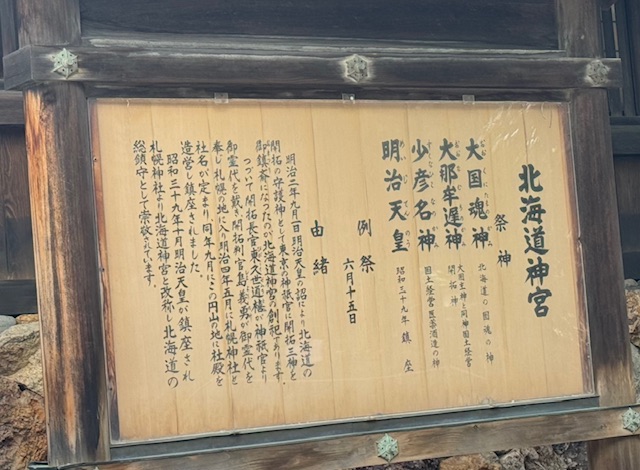 北海道神宮
祭神
大国魂神 北海道の国魂の神
大那牟遅神 大国主神と同神国土経営
開拓神
少彦名神 国土経営医薬酒造の神
明治天皇 昭和三十九年 鎮座
例祭
六月十五日
由緒
明治二年九月一日明治天皇の詔により北海道の
開拓の守護神として東京の神祇官に開拓三神を
御鎮斎になつたのが北海道神宮の創祀であります。
つづいて開拓長官東久世通禧が神祇官より
御霊代を戴き開拓判官島義勇が御霊代を
奉じ札幌の地に入り明治四年五月に札幌神社と
社名が定まり同年九月にこの円山の地に社殿を
造営し鎮座されました。
昭和三十九年十月明治天皇が鎮座され
札幌神社より北海道神宮と改称し北海道の
総鎮守として崇敬されています。